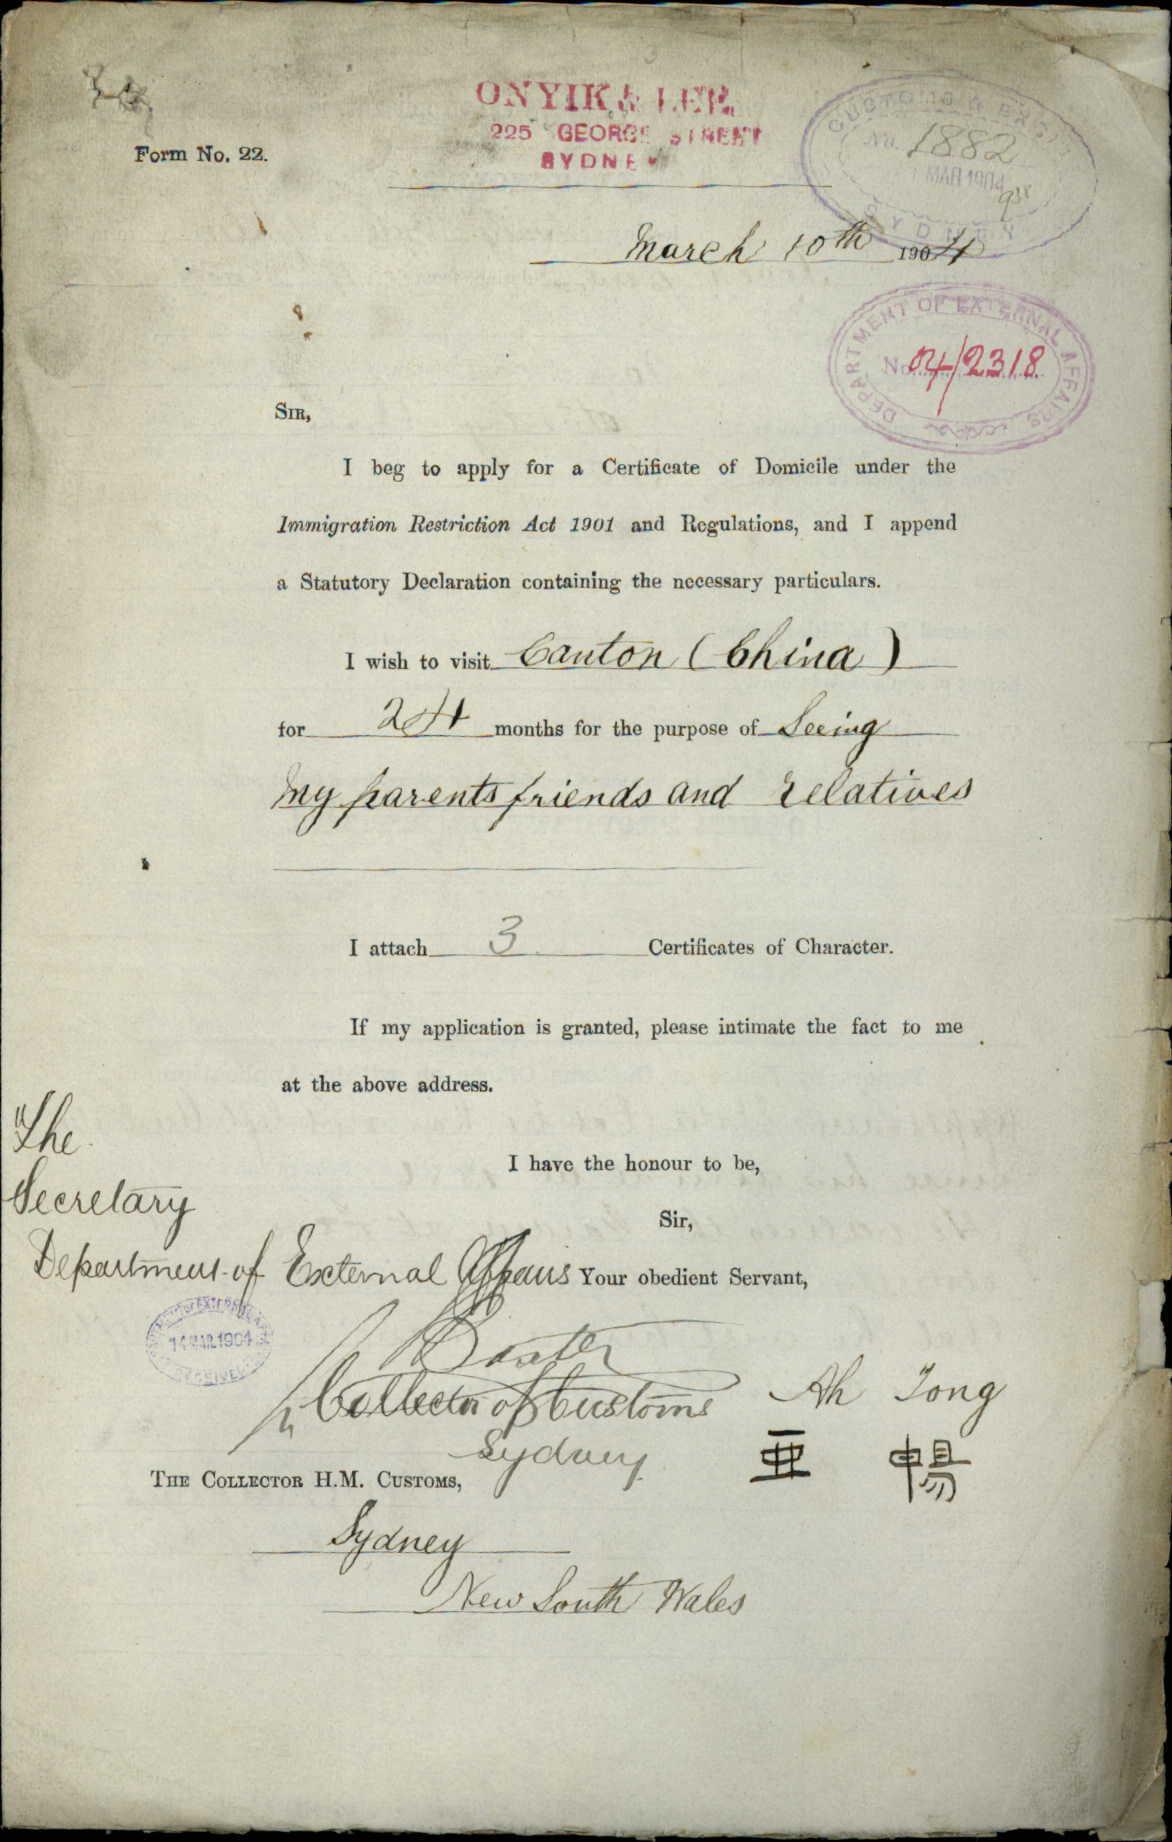 ONYIK & LEE,
225 GEORGE STREET
SYDNEY
Form No. 22.
CUSTOMS & EXCISE
No. 1882
MAR 1904
SYDNEY
March 10th 1904
DEPARTMENT OF EXTERNAL AFFAIRS
No. 04/2318
SIR,
I beg to apply for a Certificate of Domicile under the
Immigration Restriction Act 1901 and Regulations, and I append
a Statutory Declaration containing the necessary particulars.
I wish to visit Canton (China)
for 24 months for the purpose of Seeing
my parents friends and relatives
I attach 3 Certificates of Character.
If my application is granted, please intimate the fact to me
at the above address.
I have the honour to be,
Sir,
Your obedient Servant,
The
Secretary
Department of External Affairs
14 MAR 1904
RECEIVED
Baxter
Collector of Customs
Sydney
Ah Tong
亜 暢
THE COLLECTOR H.M. CUSTOMS,
Sydney
New South Wales